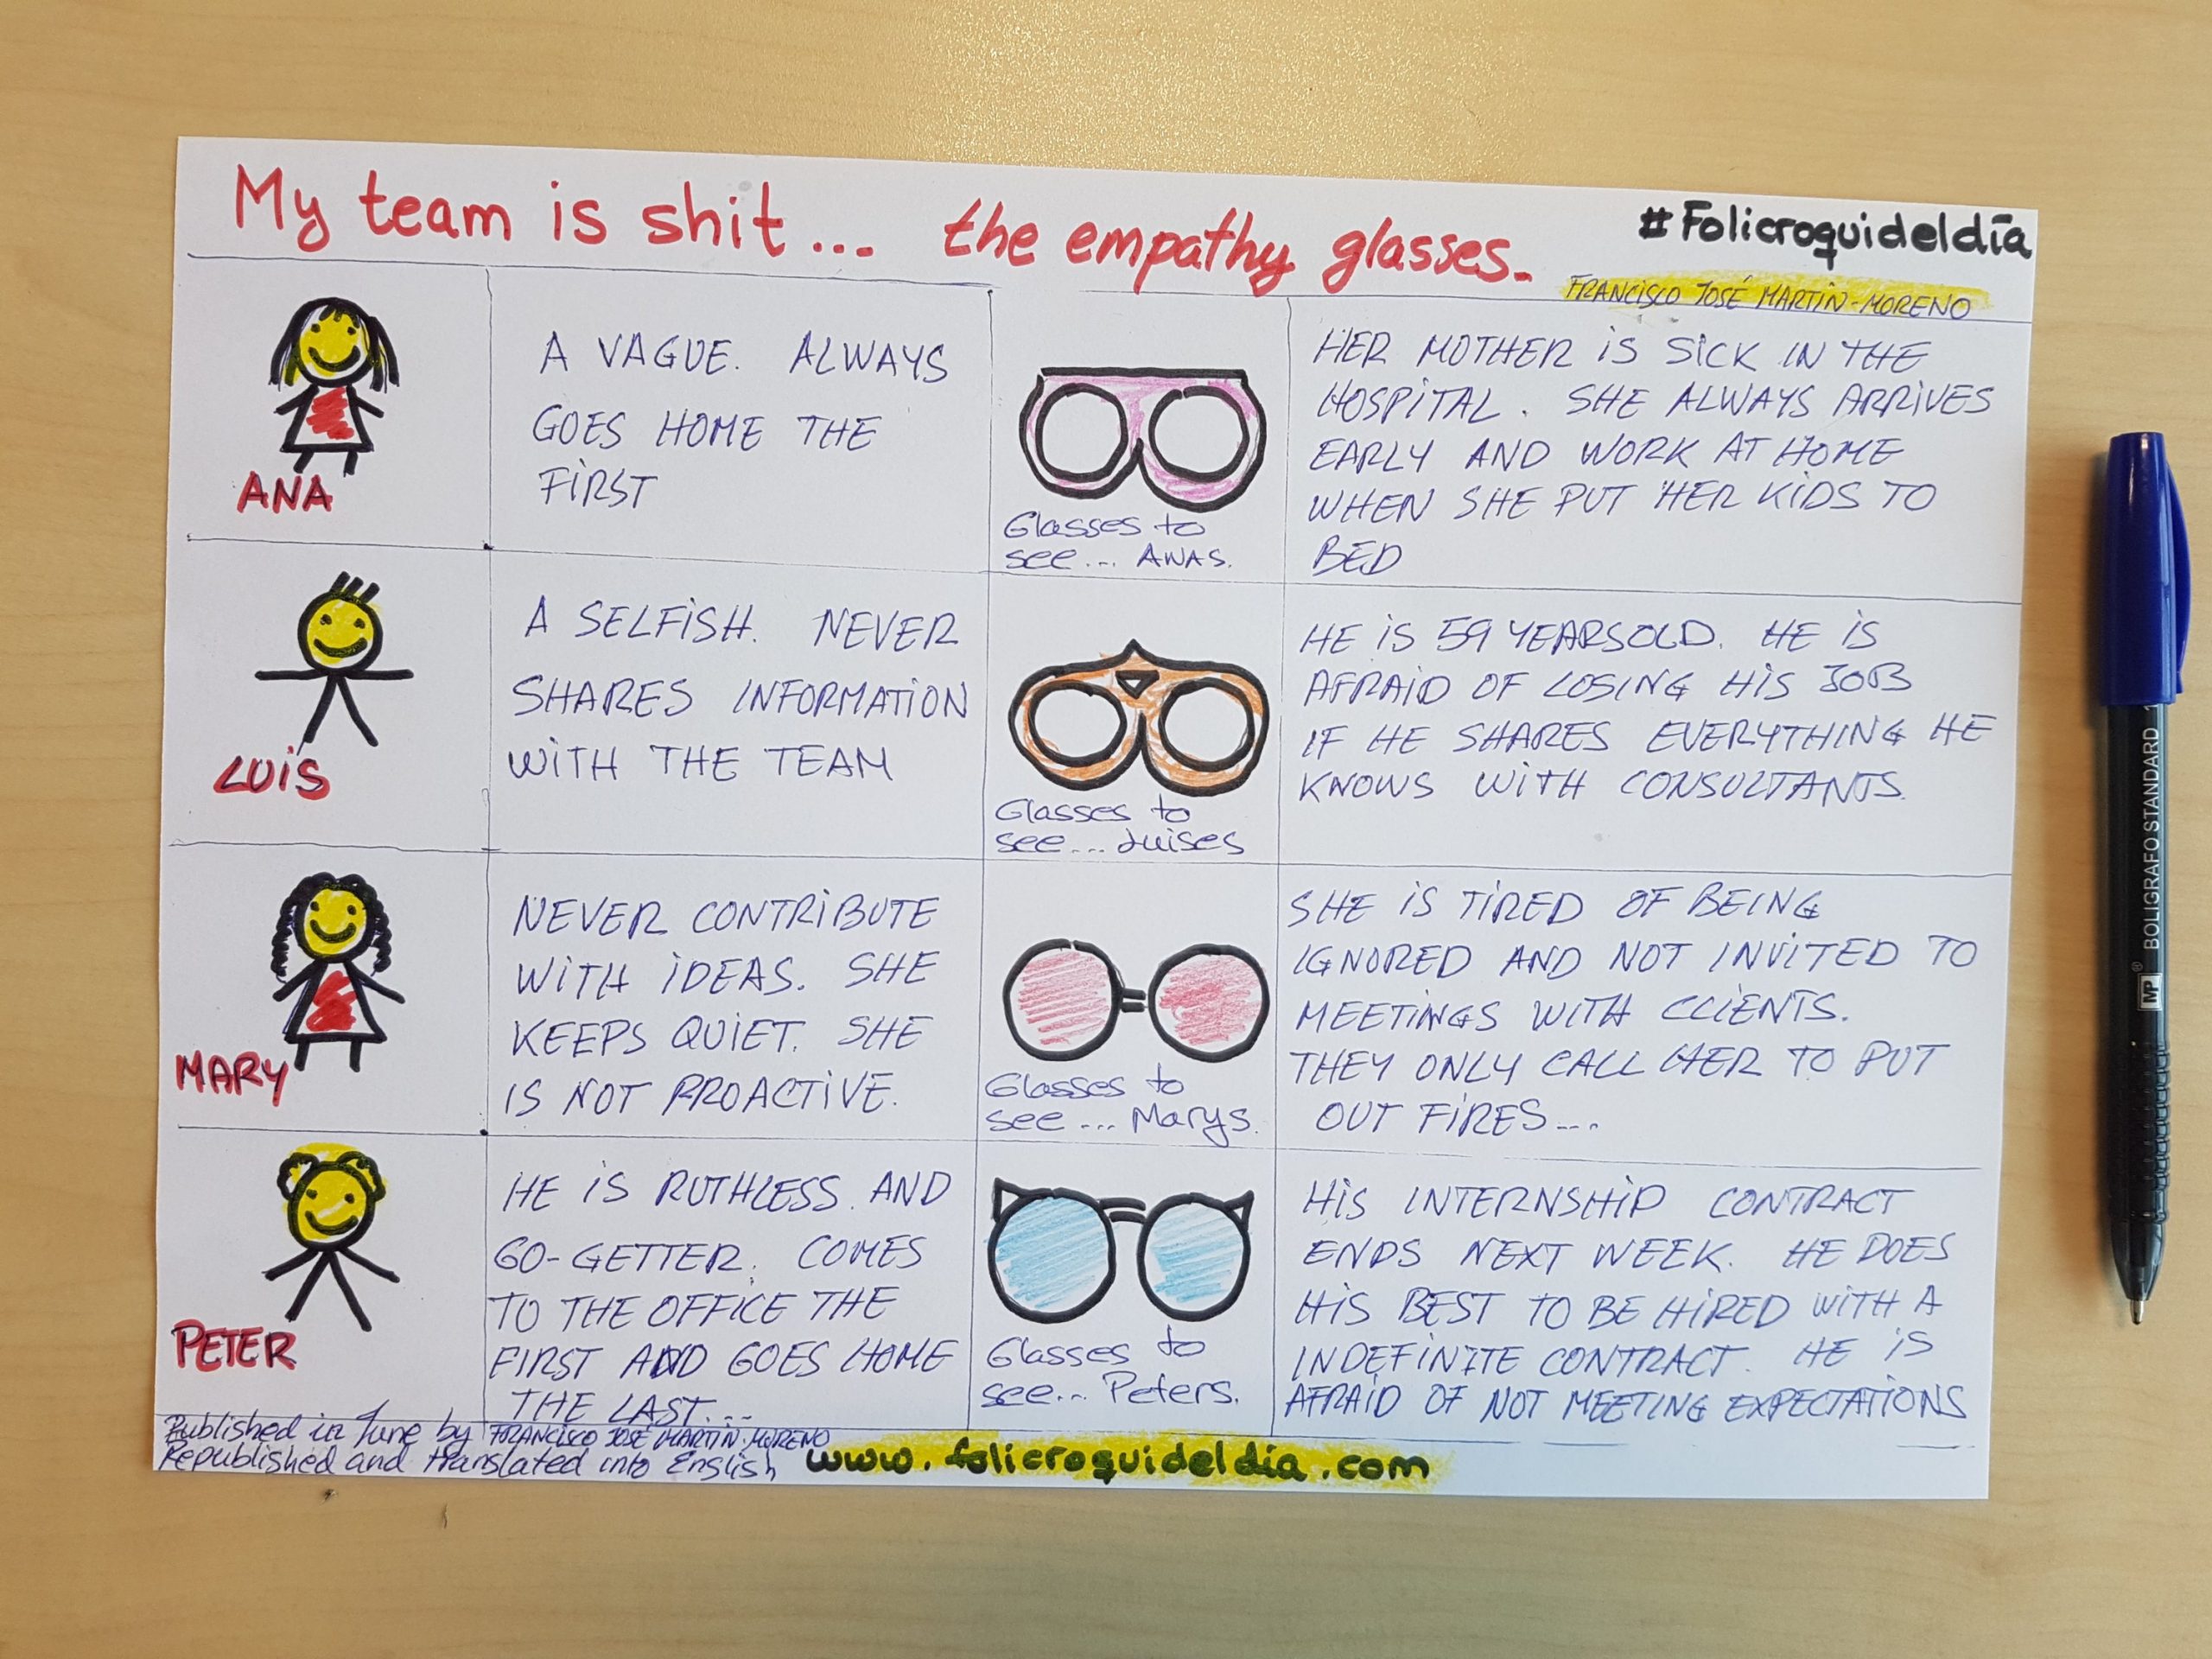 My team is shit... the empathy glasses.
#Folicroquideldía
FRANCISCO JOSÉ MARTÍN-MORENO
ANA
A VAGUE. ALWAYS
GOES HOME THE
FIRST
Glasses to
see... ANAS.
HER MOTHER IS SICK IN THE
HOSPITAL. SHE ALWAYS ARRIVES
EARLY AND WORK AT HOME
WHEN SHE PUT HER KIDS TO
BED
LUIS
A SELFISH. NEVER
SHARES INFORMATION
WITH THE TEAM
Glasses to
see... Luises
HE IS 59 YEARS OLD. HE IS
AFRAID OF LOSING HIS JOB
IF HE SHARES EVERYTHING HE
KNOWS WITH CONSULTANTS.
MARY
NEVER CONTRIBUTE
WITH IDEAS. SHE
KEEPS QUIET. SHE
IS NOT PROACTIVE.
Glasses to
see... Marys.
SHE IS TIRED OF BEING
IGNORED AND NOT INVITED TO
MEETINGS WITH CLIENTS.
THEY ONLY CALL HER TO PUT
OUT FIRES...
PETER
HE IS RUTHLESS AND
GO-GETTER. COMES
TO THE OFFICE THE
FIRST AND GOES HOME
THE LAST...
Glasses to
see... Peters.
HIS INTERNSHIP CONTRACT
ENDS NEXT WEEK. HE DOES
HIS BEST TO BE HIRED WITH A
INDEFINITE CONTRACT. HE IS
AFRAID OF NOT MEETING EXPECTATIONS
Published in June by FRANCISCO JOSÉ MARTÍN-MORENO
Republished and translated into English
www.folicroquideldia.com
MP® BOLIGRAFO STANDARD 1